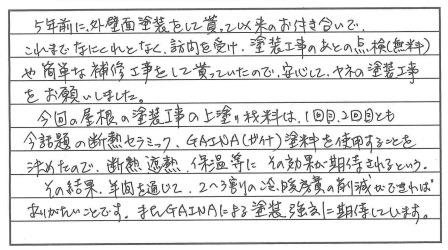 5年前に、外壁面塗装をして貰って以来のお付き合いで、
これまでなにくれとなく、訪問を受け、塗装工事のあとの点検(無料)
や簡単な補修工事をして貰っていたので、安心して、ヤネの塗装工事
をお願いしました。
今回の屋根の塗装工事の上塗り材料は、1回目、2回目とも
今話題の断熱セラミック、GAINA(ガイナ)塗料を使用することを
決めたので、断熱、遮熱、保温等にその効果が期待されるという。
その結果、年間を通じて、2〜3割の冷、暖房費の削減ができれば
ありがたいことです。またGAINAによる塗装強さに期待しています。